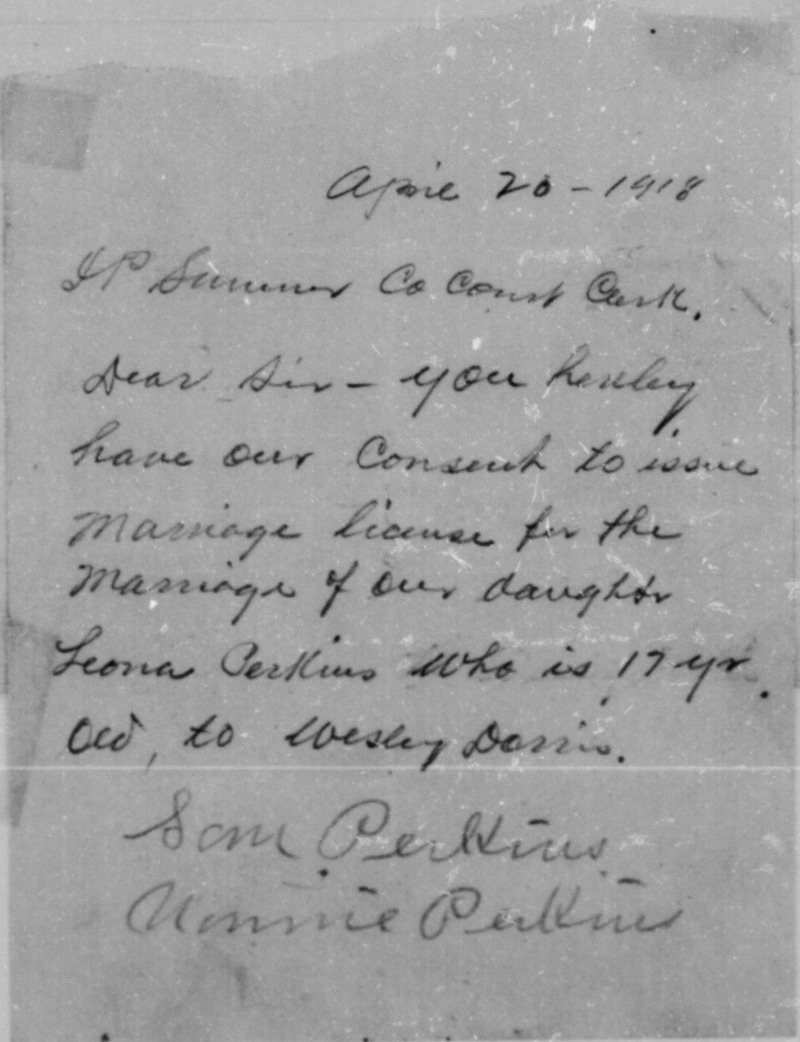 April 20 - 1918
Sumner Co Court Clerk.
Dear Sir - you hereby
have our Consent to issue
Marriage license for the
Marriage of our daughter
Leona Perkins who is 17 yr.
old, to Wesley Dorris.
Sam Perkins
Nonnie Perkins